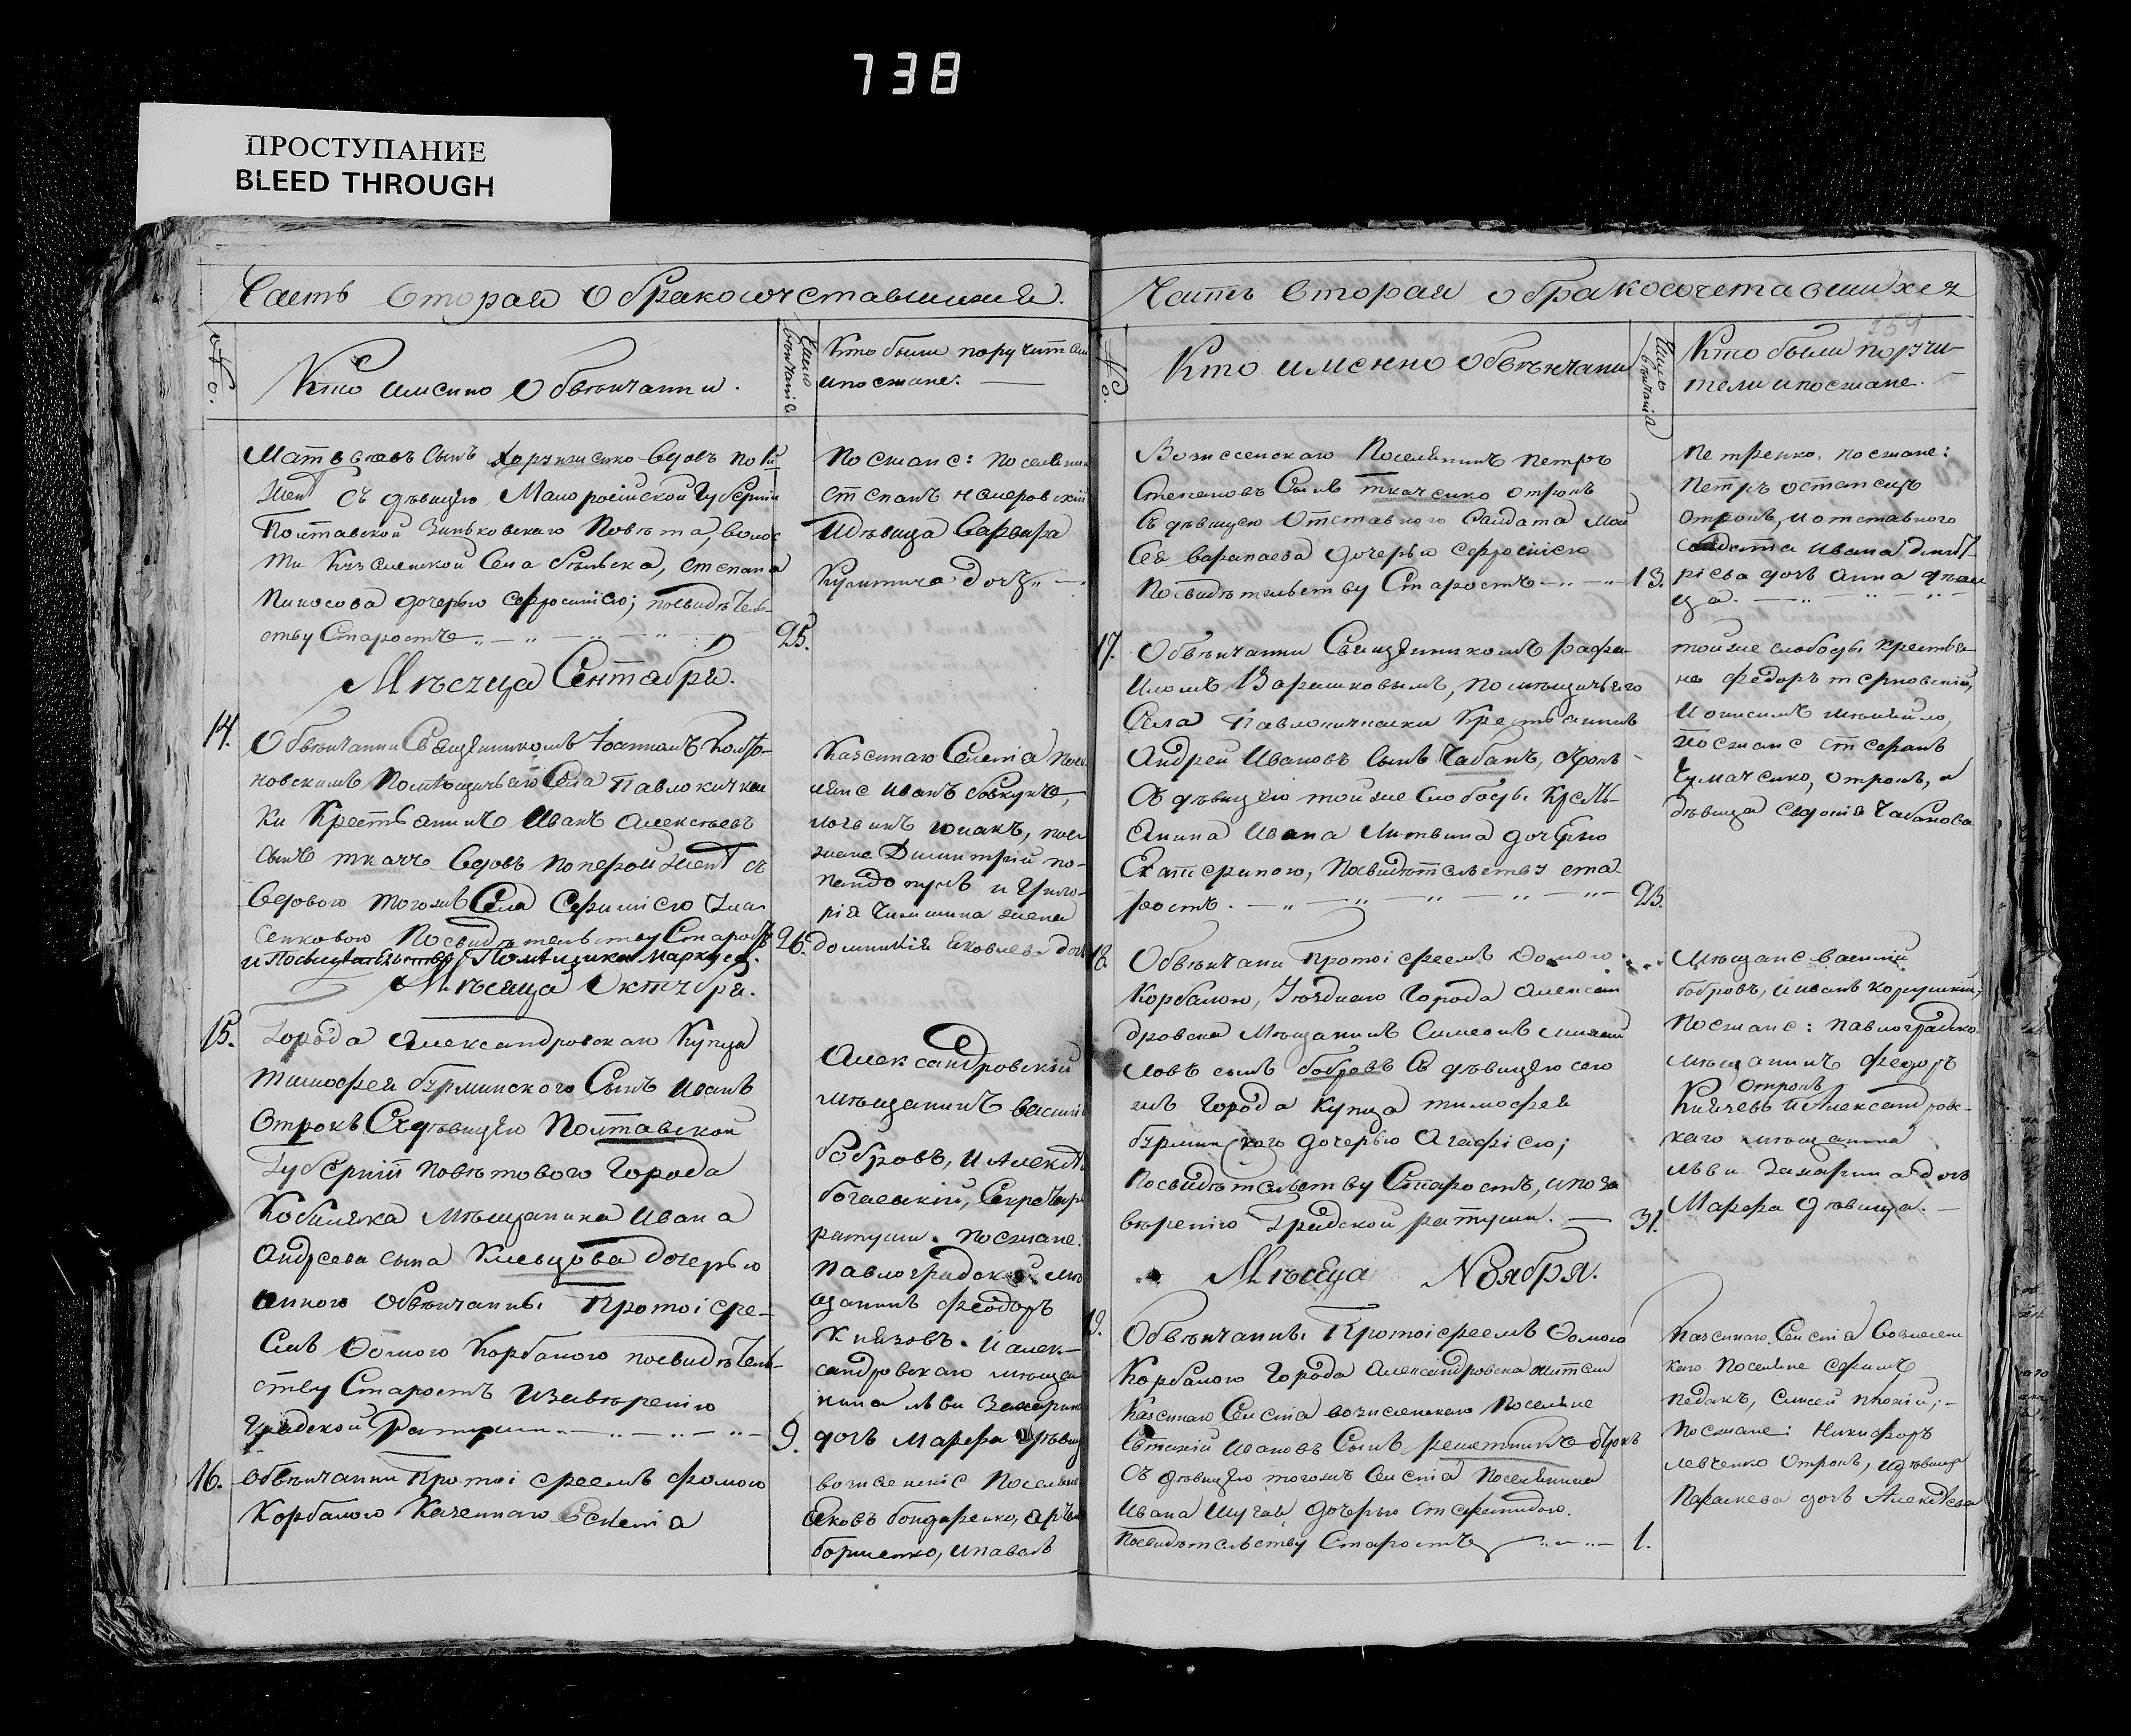 738
ПРОСТУПАНИЕ
BLEED THROUGH
Часть вторая о бракосочетавшихся.
№.
Кто имено обвѣнчанни.
Число вѣнчанія
Кто были поручители
и посжане.
Матвѣевъ сынъ вдовъ по й
женѣ съ дѣвицею Малоросійской Губерніи
Полтавской Зиньковскаго Повѣта, волос
ти села Бѣлыска, Степана
дочерью Ефросиніею; посвидѣтель-
ству Старостъ
25.
Посжане: поселянин
Степанъ
И дѣвица Варвара
дочь
Мѣсяца Сентября.
14.
Обвѣнчанни Священникомъ Іоанномъ
новскимъ Помѣщичьяго Села Павлокички
ки Крестьянинъ Иванъ Алексѣевъ
сынъ ткачъ вдовъ по первой женѣ съ
вдовою тогожъ Села Ефиміею
сенковою Посвидѣтельству Старостъ
и Помѣщика Маркуса.
26.
Казеннаго Селенія посе
ляне Иванъ Совкунъ,
юнакъ, посе
жане Димитрій по-
и Григо-
рія жена
Домникія Яковлева доч
Мѣсяца Октября.
15.
Города Александровскаго Купца
Тимофея Бурминского Сынъ Иванъ
Отрокъ Съ дѣвицею Полтавской
Губерніи повѣтового Города
Кобиляка Мѣщанина Ивана
Андреева сына Кильцова дочерью
Анною Обвѣнчанны Протоіере-
емъ Ѳомою Корбаною посвидѣтель-
ству Старостъ Изавѣренію
Градской Ратуши
9.
Александровскій
мѣщанинъ Васили
Бобровъ, и Алексѣй
Богаевскій, Секретарь
ратуши. Посжане.
Павлоградскій мѣ
щанинъ Феодоръ
Князовъ. И Алек-
сандровскаго мѣща
нина Льви Захарин
дочь Марфа дѣвиц
16.
Обвѣнчанни Протоіереемъ Фомою
Корбаною Казеннаго Селенія
вознсенскіе Поселяне
Яковъ Бондаренко,
и Павелъ
Часть вторая о бракосочетавшихся
154
№.
Кто именно обвѣнчани
Число вѣнчанія
Кто были поручи-
тели и посжане.
Вознесенскаго Поселянинъ Петръ
Степановъ Сынъ ткаченко отрокъ
Съ дѣвицею Отставного Салдата Мой
сея Варапаева дочерью Ефросиніею
Посвидѣтельству Старостъ
13.
Петренко. посжане:
Петръ Остапецъ
отрокъ, и отставного
салдата Ивана
дочь Анна дѣви
ца.
17.
Обвѣнчанни Священникомъ Рафа-
иломъ Варешковымъ, Помѣщичьяго
Села Павлокички Крестьянинъ
Андрей Ивановъ Сынъ Чабанъ, отрокъ
Съ дѣвицею той же слободы Кресть-
янина Ивана Литвина дочерью
Екатериною, Посвидѣтельству ста-
ростъ.
23.
той же слободы крестья-
не Федоръ Терновскій,
Посжане Стефанъ
Чумаченко, отрокъ, и
дѣвица Евдокія Чабанова
18.
Обвѣнчани Протоіереемъ Ѳомою
Корбаною, Уѣзднаго Города Алексан
дровска Мѣщанинъ Симеонъ Михай
ловъ сынъ Бобровъ Съ дѣвицею сего
жъ Города купца Тимофея
Бурминскаго дочерью Агафіею;
Посвидѣтельству Старостъ, и поза
вѣренію Градской ратуши.
31.
Мѣщане Василій
Бобровъ, и Иванъ
Посжане: Павлоградско
мѣщанинъ Федоръ
отрокъ
Князевъ и Александровс-
каго мѣщанина
Льви Захарина дочь
Марфа дѣвица.
Мѣсяца Ноября.
19.
Обвѣнчанны Протоіереемъ Ѳомою
Корбаною Города Александровска жители
Казеннаго Селенія вознсенскаго Поселяне
Евтихій Ивановъ Сынъ решетникъ отрокъ
Съ дѣвицею тогожъ Селенія Поселянина
Ивана Шугая дочерью Стефанидою.
Посвидѣтельству Старостъ
1.
Казеннаго Селенія Вознесенс
каго Поселяне Ефимъ
Педакъ, Плохій;
Посжане: Никифоръ
Левченко Отрокъ, и дѣвица
Параскева дочь Алексѣева